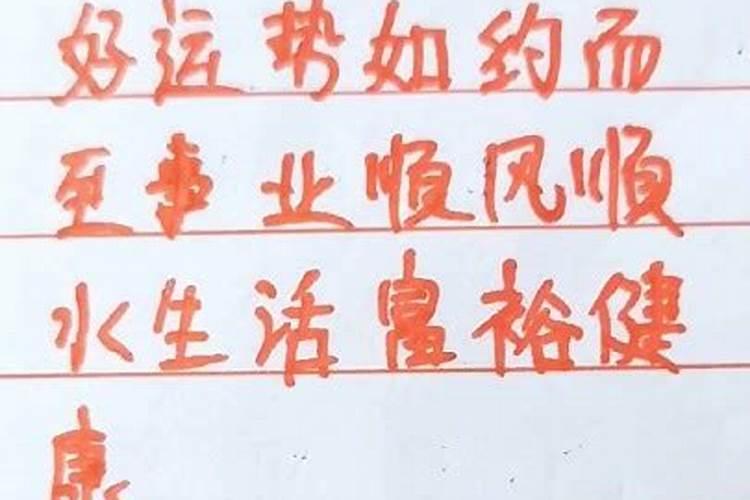 好运势如约而
至事业顺风顺
水生活富裕健
康